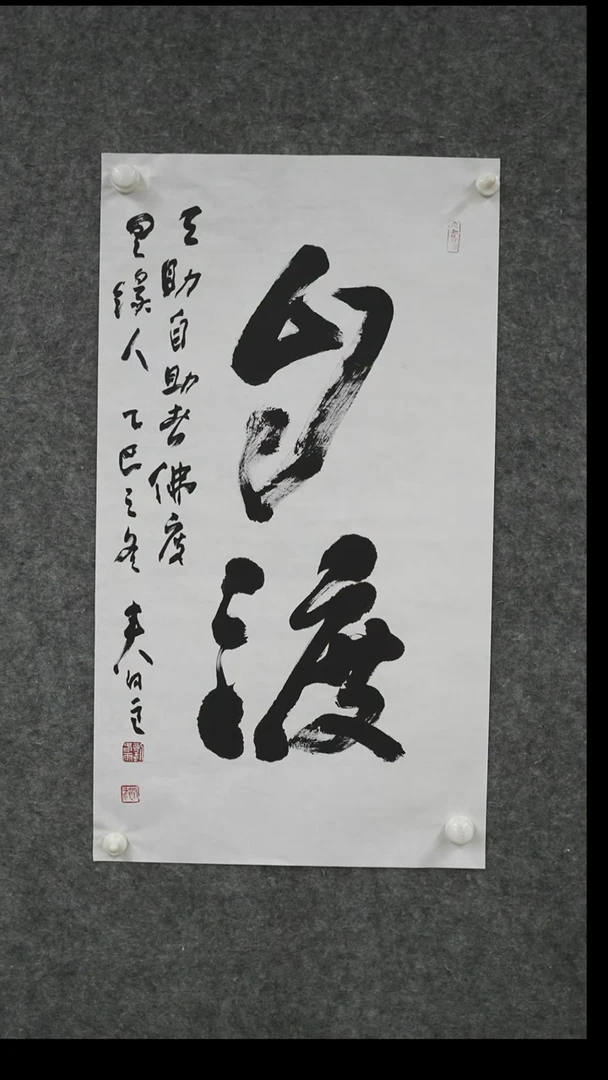 自渡
天助自助者佛度
有缘人乙巳之冬